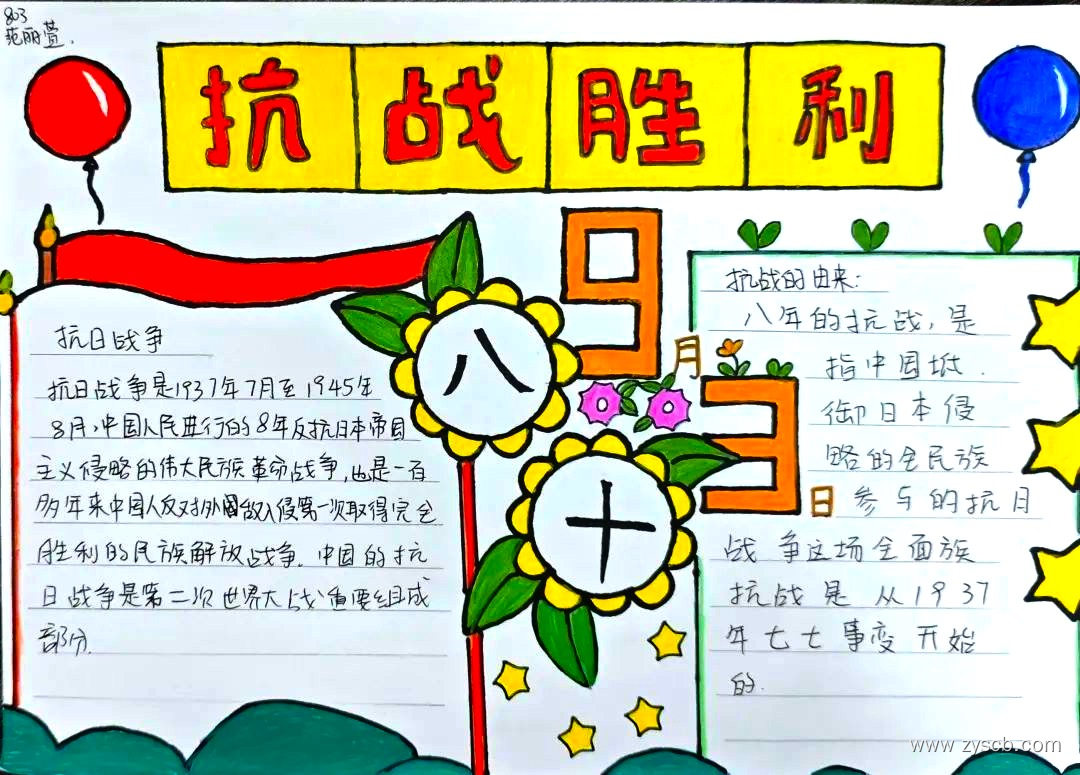 803
范丽萱.
抗战胜利
9
月
3
日
八
十
抗日战争
抗日战争是1937年7月至1945年
8月,中国人民进行的8年反抗日本帝国
主义侵略的伟大民族革命战争,也是一百
多年来中国人反对外国敌入侵第一次取得完全
胜利的民族解放战争.中国的抗
日战争是第二次世界大战重要组成
部分.
抗战的由来:
八年的抗战,是
指中国抵.
御日本侵
略的全民族
参与的抗日
战争这场全面族
抗战是从1937
年七七事变开始
的.
www.zyscb.com